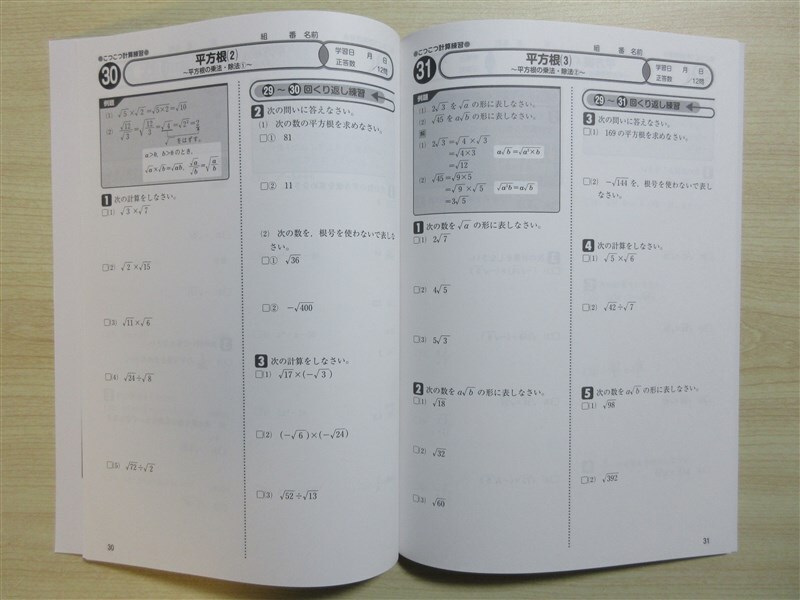 ●こつこつ計算練習●
組 番 名前
30
平方根(2)
〜平方根の乗法・除法①〜
学習日 月 日
正答数 /12問
例題
(1) √5×√2=√5×2=√10
a>0, b>0のとき,
√a×√b=√ab, √a/√b=√(a/b)
1 次の計算をしなさい。
□(1) √3×√7
□(2) √2×√15
□(3) √11×√6
□(4) √24÷√8
□(5) √72÷√2
29〜30回くり返し練習
2 次の問いに答えなさい。
(1) 次の数の平方根を求めなさい。
□① 81
□② 11
(2) 次の数を,根号を使わないで表しな
さい。
□① √36
□② −√400
3 次の計算をしなさい。
□(1) √17×(−√3)
□(2) (−√6)×(−√24)
□(3) √52÷√13
30
●こつこつ計算練習●
組 番 名前
31
平方根(3)
〜平方根の乗法・除法②〜
学習日 月 日
正答数 /12問
例題
(1) 2√3 を√a の形に表しなさい。
(2) √45 を a√b の形に表しなさい。
(1) 2√3=√4×√3
=√4×3
=√12
a√b=√a²×b
(2) √45=√9×5
=√9×√5
=3√5
√a²b=a√b
1 次の数を√a の形に表しなさい。
□(1) 2√7
□(2) 4√5
□(3) 5√3
2 次の数を a√b の形に表しなさい。
□(1) √18
□(2) √32
□(3) √60
29〜31回くり返し練習
3 次の問いに答えなさい。
□(1) 169の平方根を求めなさい。
□(2) −√144を,根号を使わないで表し
なさい。
4 次の計算をしなさい。
□(1) √5×√6
□(2) √42÷√7
5 次の数を a√b の形に表しなさい。
□(1) √98
□(2) √392
31